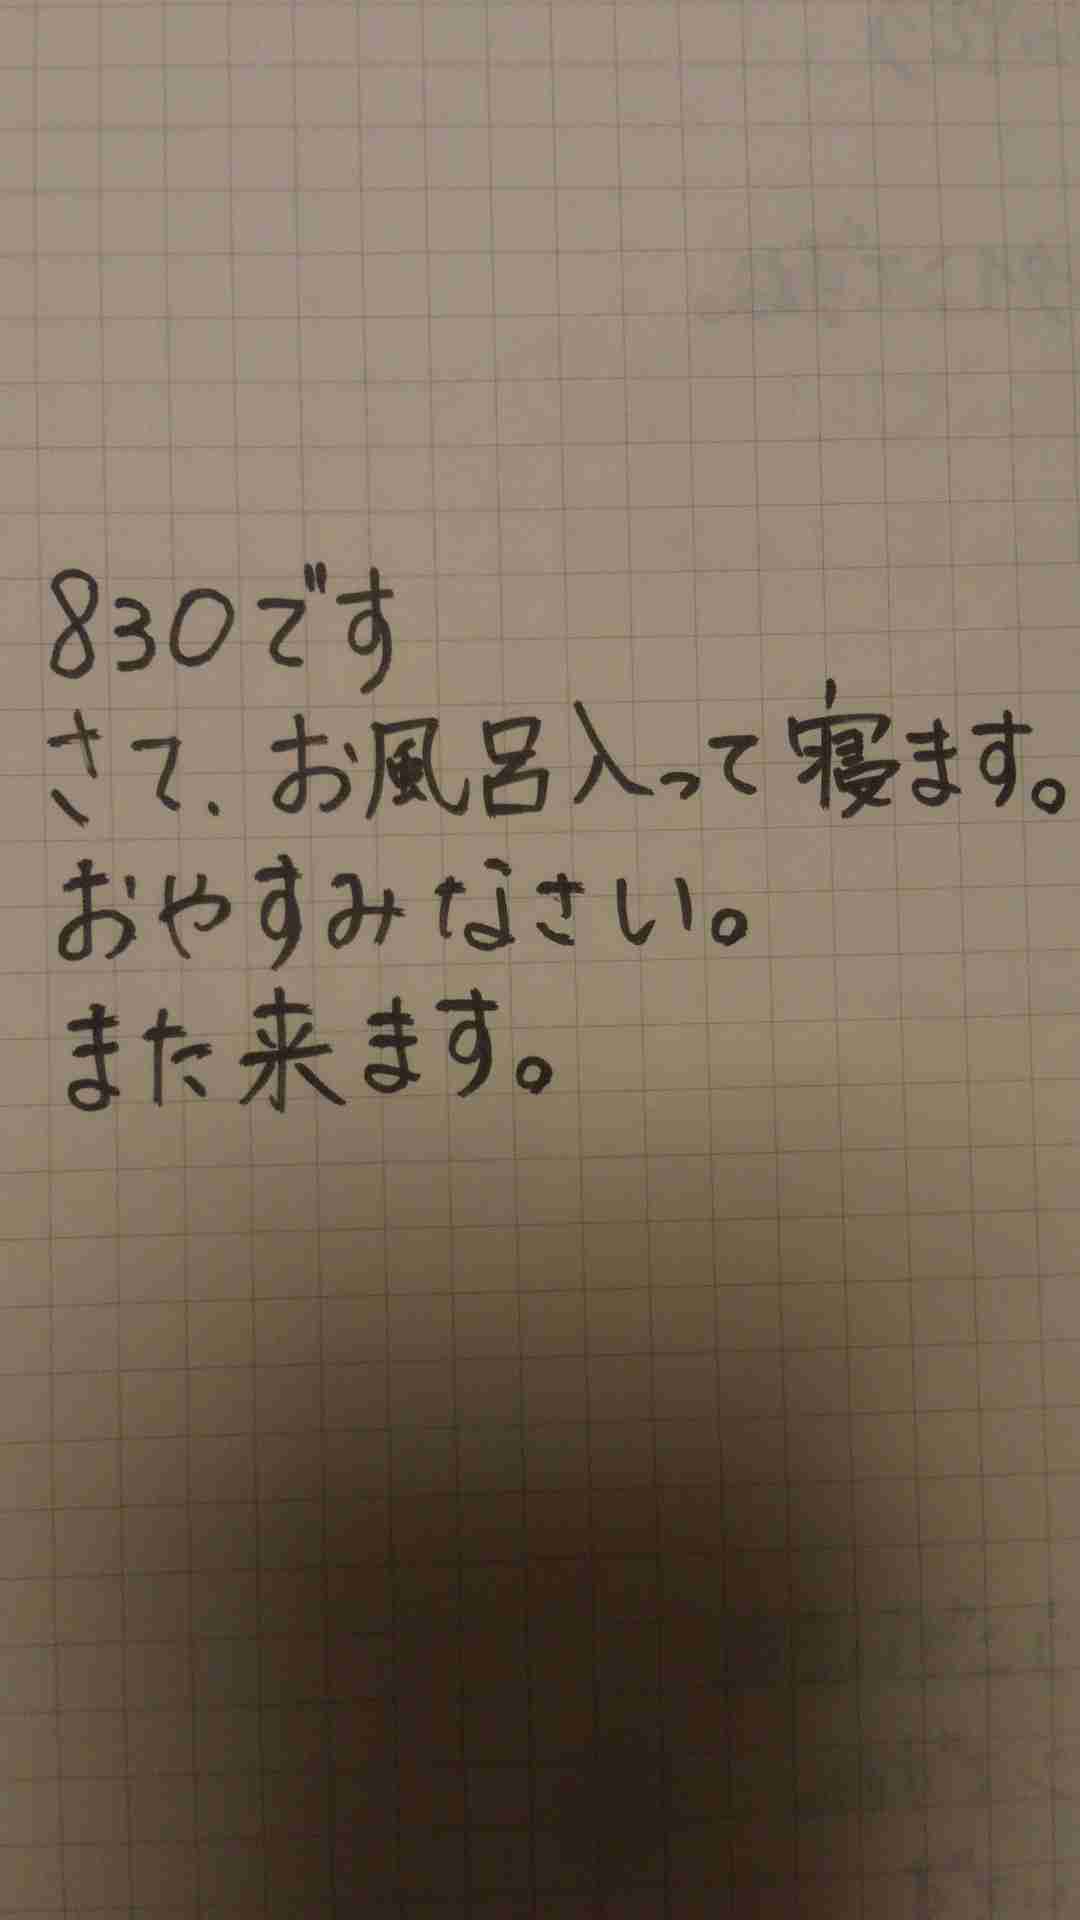 830です
さて、お風呂入って寝ます。
おやすみなさい。
また来ます。